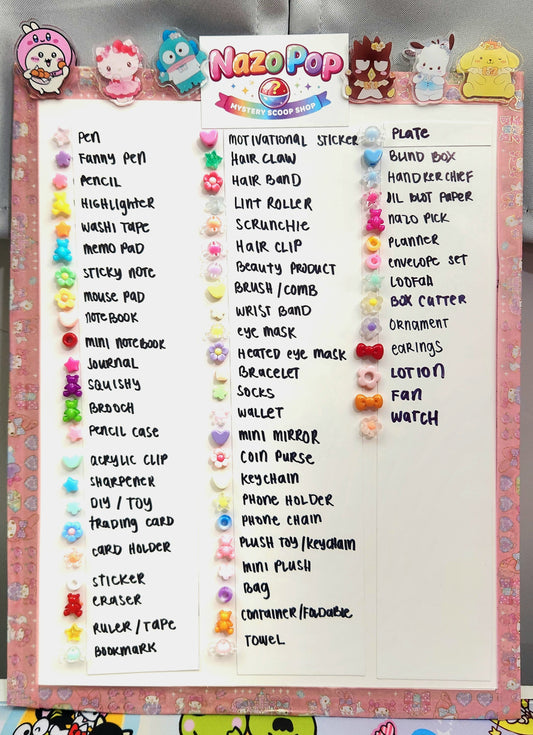 Nazo Pop
MYSTERY SCOOP SHOP
PEN
FANNY PEN
PENCIL
HIGHLIGHTER
WASHI TAPE
MEMO PAD
STICKY NOTE
MOUSE PAD
NOTEBOOK
MINI NOTEBOOK
JOURNAL
SQUISHY
BROOCH
PENCIL CASE
ACRYLIC CLIP
SHARPENER
DIY / TOY
TRADING CARD
CARD HOLDER
STICKER
ERASER
RULER / TAPE
BOOKMARK
MOTIVATIONAL STICKER
HAIR CLAW
HAIR BAND
LINT ROLLER
SCRUNCHIE
HAIR CLIP
BEAUTY PRODUCT
BRUSH / COMB
WRIST BAND
EYE MASK
HEATED EYE MASK
BRACELET
SOCKS
WALLET
MINI MIRROR
COIN PURSE
KEYCHAIN
PHONE HOLDER
PHONE CHAIN
PLUSH TOY / KEYCHAIN
MINI PLUSH
BAG
CONTAINER / FOLDABLE
TOWEL
PLATE
BLIND BOX
HANDKERCHIEF
OIL BLOT PAPER
NAZO PICK
PLANNER
ENVELOPE SET
LOOFAH
BOX CUTTER
ORNAMENT
EARINGS
LOTION
FAN
WATCH